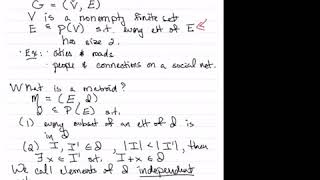 G = (V, E)
V is a nonempty finite set
E ⊆ P(V) s.t. every elt of E
has size 2.
· Ex: · cities & roads
· people & connections on a social net.
What is a matroid?
M = (E, I)
I ⊆ P(E) s.t.
(1) every subset of an elt of I is
in I
(2) I, I' ∈ I, |I| < |I'|, then
∃ x ∈ I' st. I + x ∈ I
We call elements of I independent